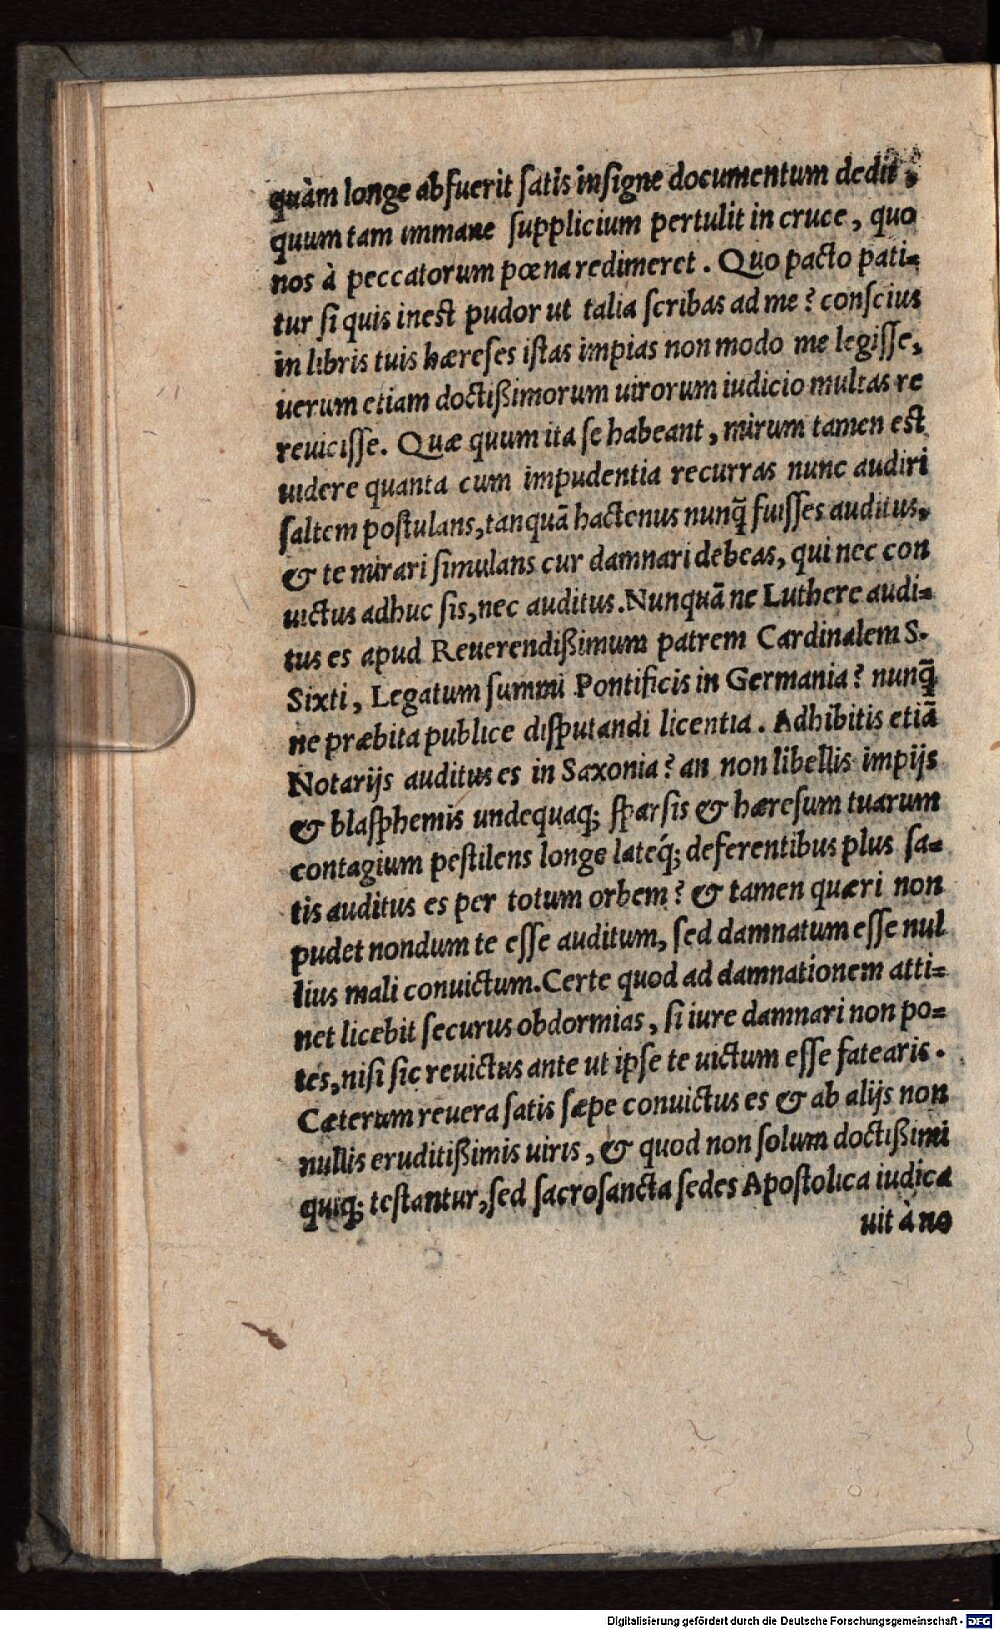 quàm longe abfuerit ſatis inſigne documentum dedit,
quum tam immane ſupplicium pertulit in cruce, quo
nos à peccatorum pœna redimeret. Quo pacto pati-
tur ſi quis ineſt pudor ut talia ſcribas ad me? conſcius
in libris tuis hæreſes iſtas impias non modo me legiſſe,
uerum etiam doctißimorum uirorum iudicio multas re
reuiciſſe. Quæ quum ita ſe habeant, mirum tamen eſt
uidere quanta cum impudentia recurras nunc audiri
ſaltem poſtulans, tanquã hactenus nunq̃ fuiſſes auditus,
& te mirari ſimulans cur damnari debeas, qui nec con
uictus adhuc ſis, nec auditus. Nunquã ne Luthere audi-
tus es apud Reuerendißimum patrem Cardinalem S.
Sixti, Legatum ſummi Pontificis in Germania? nunq̃
ne præbita publice diſputandi licentia. Adhibitis etiã
Notarijs auditus es in Saxonia? an non libellis impijs
& blaſphemis undequaq; ſparſis & hæreſum tuarum
contagium peſtilens longe lateq́; deferentibus plus ſa-
tis auditus es per totum orbem? & tamen quæri non
pudet nondum te eſſe auditum, ſed damnatum eſſe nul
lius mali conuictum. Certe quod ad damnationem atti-
net licebit ſecurus obdormias, ſi iure damnari non po-
tes, niſi ſic reuictus ante ut ipſe te uictum eſſe fatearis.
Cæterum reuera ſatis ſæpe conuictus es & ab alijs non
nullis eruditißimis uiris, & quod non ſolum doctißimi
quiq; teſtantur, ſed ſacroſancta ſedes Apoſtolica iudica
uit à no
Digitalisierung gefördert durch die Deutsche Forschungsgemeinschaft - DFG